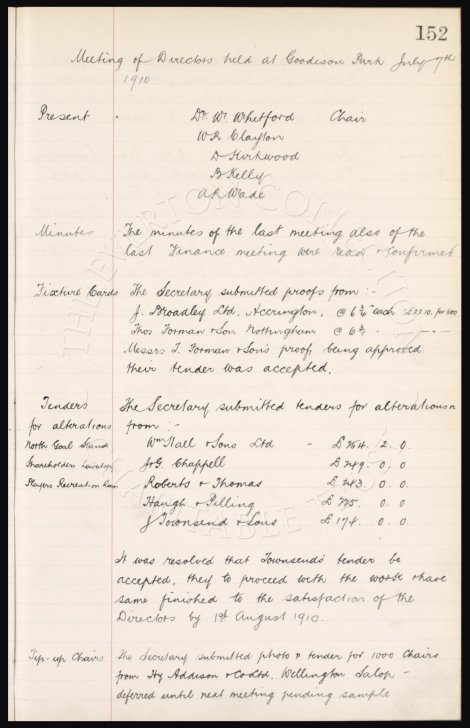 152
Meeting of Directors held at Goodison Park July 7th
1910
Present - Dr. W. Whitford Chair
W.R. Clayton
D. Kirkwood
B. Kelly
A.R. Wade
Minutes The minutes of the last meeting also of the
last Finance meeting were read & confirmed
Fixture Cards The Secretary submitted proofs from :-
J. Broadley Ltd, Accrington, @ 6¾ each
Thos Forman & Son Nottingham @ 6¾
Messrs T. Forman & Son's proof being approved
their tender was accepted.
Tenders The Secretary submitted tenders for alterations
for alterations from :-
North Goal Stand Wm Hall & Sons Ltd - £264. 2. 0.
Shareholders Lavatory J & G. Chappell £249. 0. 0
Players Recreation Room Roberts & Thomas £243. 0. 0
Haugh & Pilling £225. 0. 0
J Townsend & Sons £174. 0. 0.
It was resolved that Townsend's tender be
accepted, they to proceed with the work & have
same finished to the satisfaction of the
Directors by 1st August 1910.
Tip-up Chairs The Secretary submitted photo & tender for 1000 Chairs
from Hy Addison & Co Ltd. Wellington Salop -
deferred until next meeting pending sample
THE EVERTON COLLECTION
CHARITABLE TRUST